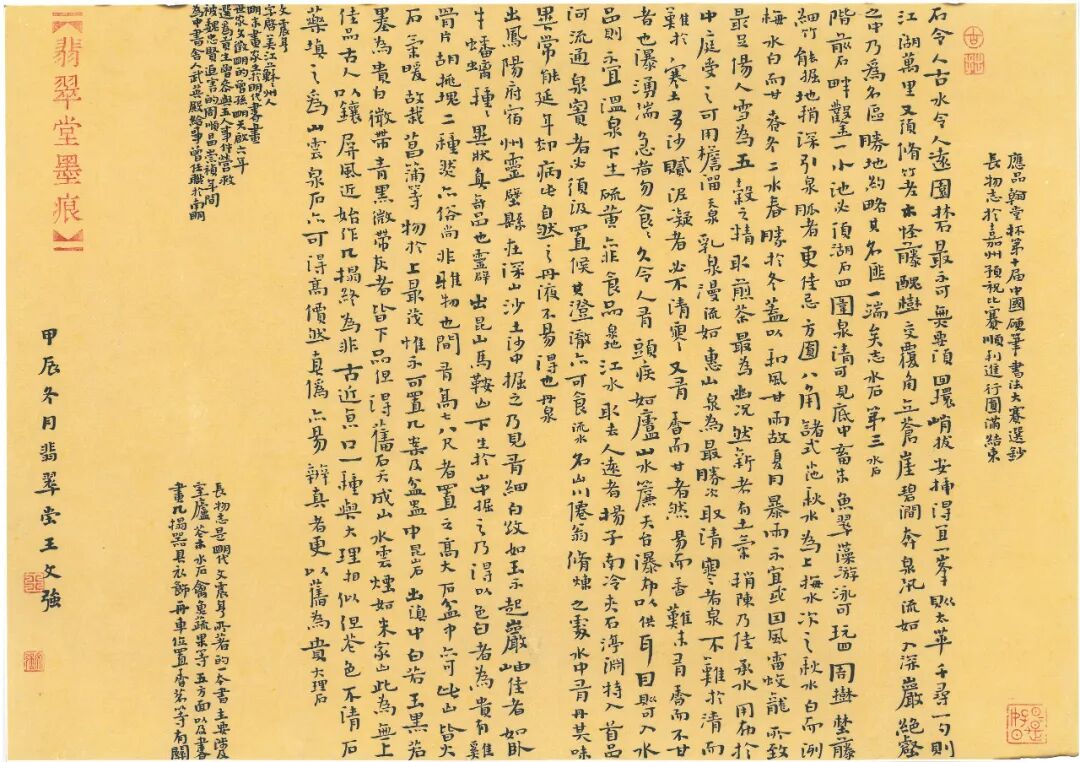 應品翰堂杯第十届中國硬筆書法大賽選鈔
長物志於嘉州預祝比賽順利進行圓滿結束
石令人古水令人遠園林水石最不可無要須回環峭拔安插得宜一峯則太華千尋一勺則
江湖萬里又須脩竹老木怪藤醜樹交覆角立蒼崖碧澗奔泉汎流如入深巖絕壑
之中乃為名區勝地約略其名匪一端矣志水石第三 水石
階前石畔鑿一小池必須湖石四圍泉清可見底中畜朱魚翠藻游泳可玩四周樹埜藤
細竹能掘地稍深引泉脈者更佳忌方圓八角諸式 池 秋水為上梅水次之秋水白而洌
梅水白而甘春冬二水春勝於冬蓋以和風甘雨故夏月暴雨不宜或因風雷蛟龍所致
最足傷人雪為五穀之精取煎茶最為幽况然新者有土氣稍陳乃佳承水用布於
中庭受之可用檐溜 天泉 乳泉漫流如惠山泉為最勝次取清寒者泉不難於清而
難於寒土多沙膩泥凝者必不清寒又有香而甘者然易而香難未有香而不甘
者也瀑湧湍急者勿食食久令人有頭疾如廬山水簾天台瀑布以供耳目則可入水
品則不宜温泉下生硫黄亦非食品 地泉 江水取去人遠者揚子南泠夾石渟淵特入首品
河流通泉竇者必須汲置候其澄澈亦可食 流水 名山大川僊翁脩煉之處水中有丹其味
異常能延年却病此自然之丹液不易得也 丹泉
出鳳陽府宿州靈璧縣在深山沙土沙中掘之乃見有細白紋如玉不起巖岫佳者如臥
牛蟠螭種種異狀真奇品也 靈壁 出崑山馬鞍山下生於山中掘之乃得以色白者為貴有雞
骨片胡桃塊二種然亦俗尚非雅物也間有高七八尺者置之高大石盆中亦可此山皆火
石氣暖故栽菖蒲等物於上最茂惟不可置几案及盆盎中 昆石 出滇中白若玉黑若
墨為貴白微帶青黑微帶灰者皆下品但得舊石天成山水雲煙如米家山此為無上
佳品古人以鑲屏風近始作几榻終為非古近京口一種與大理相似但花色不清石
藥填之為山雲泉石亦可得高價然真偽亦易辨真者更以舊為貴 大理石
文震亨
字啓美江蘇蘇州人
明末畫家
世家文徵明的曾孫明天啓六年
選為貢生曾參與五人事件營救
被魏忠賢迫害的周順昌崇禎年間
為中書舍人武英殿給事曾任職於南明
長物志是明代文震亨所著的
室廬花木水石禽魚蔬果等五方面以及書
畫几榻器具衣飾舟車位置香茗等有關
甲辰冬月翡翠堂王文強
【翡翠堂墨痕】